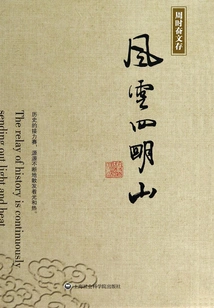 周时奋文存
風雲四明山
历史的接力赛，源源不断地散发着光和热。
The relay of history is continuously
sending out light and heat
上海社会科学院出版社